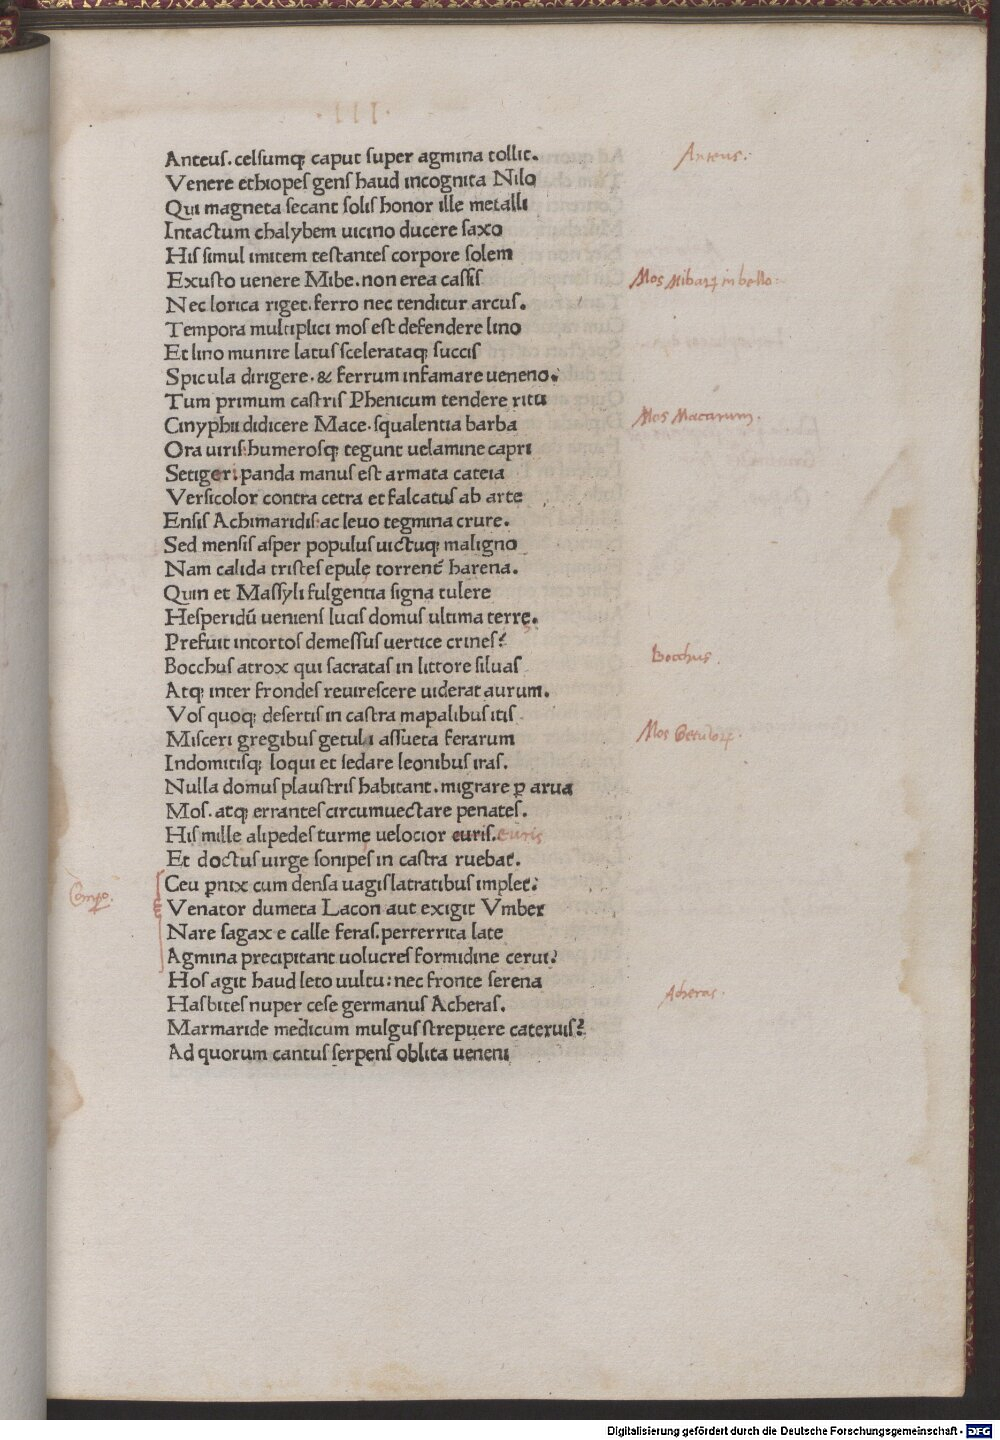 ·III·
Anteus. celsumq; caput super agmina tollit.
Anteus:
Venere ethiopes gens haud incognita Nilo
Qui magneta secant solis honor ille metalli
Intactum chalybem uicino ducere saxo
His simul imitem testantes corpore solem
Exusto uenere Mibe. non erea cassis
Mos Nibarꝝ in bello:
Nec lorica riget. ferro nec tenditur arcus.
Tempora multiplici mos est defendere lino
Et lino munire latus scelerataq; succis
Spicula dirigere. & ferrum infamare ueneno.
Tum primum castris Phenicum tendere ritu
Cinyphii didicere Mace. squalentia barba
Mos Macarum.
Ora uiris: humerosq; tegunt uelamine capri
Setigeri. panda manus est armata cateia
Versicolor contra cetra et falcatus ab arte
Ensis Achimaridis: ac leuo tegmina crure.
Sed mensis asper populus uictuq; maligno
Nam calida tristes epulę torrent᷑ harena.
Quin et Massyli fulgentia signa tulere
Hesperidū ueniens lucis domus ultima terrę.
Prefuit intortos demessus uertice crines?
Bocchus atrox qui sacratas in littore siluas
Bocchus.
Atq; inter frondes reuirescere uiderat aurum.
Vos quoq; desertis in castra mapalibus itis
Misceri gregibus getuli assueta ferarum
Mos Getulorꝝ.
Indomitisq; loqui et sedare leonibus iras.
Nulla domus plaustris habitant. migrare ꝑ arua
Mos. atq; errantes circumuectare penates.
His mille alipedes turmę uelocior euris. euris
Et doctus uirge sonipes in castra ruebat.
Ceu ꝑnix cum densa uagis latratibus implet:
Compo.
Venator dumeta Lacon aut exigit Vmber
Nare sagax e calle feras. perterrita late
Agmina precipitant uolucres formidine cerui?
Hos agit haud leto uultu: nec fronte serena
Hasbites nuper cese germanus Acheras.
Acheras.
Marmaride medicum mulgus strepuere cateruis?
Ad quorum cantus serpens oblita ueneni
Digitalisierung gefördert durch die Deutsche Forschungsgemeinschaft - DFG